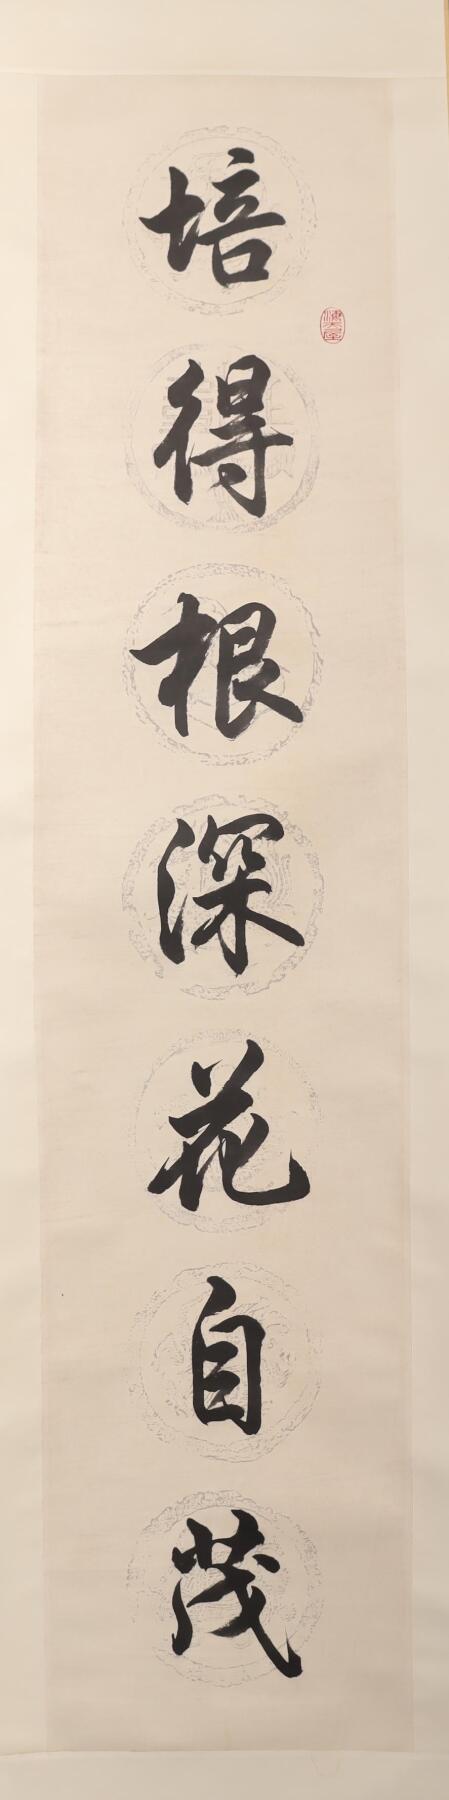 培得根深花自茂